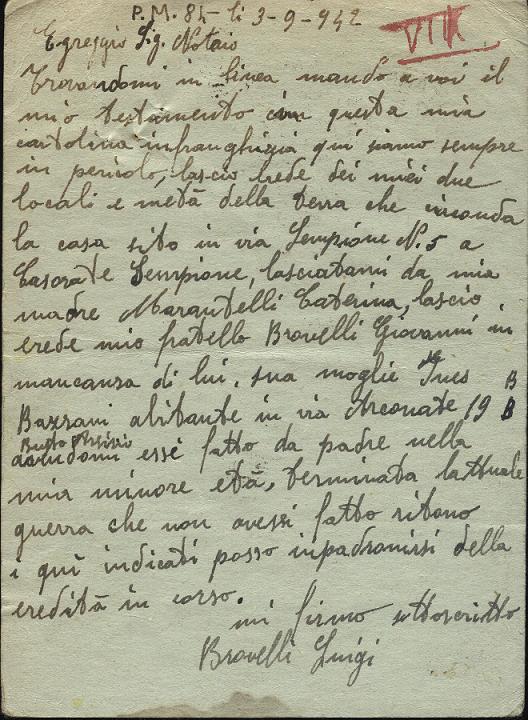 P.M. 84 - li 3-9-942
VIII
Egreggio Sig. Notaio
Trovandomi in linea mando a voi il
mio testamento con questa mia
cartolina infranghigia qui siamo sempre
in pericolo, lascio erede dei miei due
locali e metà della terra che circonda
la casa sito in via Sempione N. 5 a
Casorate Sempione, lasciatami da mia
madre Marantelli Caterina, lascio
erede mio fratello Brovelli Giovanni in
mancanza di lui, sua moglie Ines
Bazzani abitante in via Arconate 19 B
Busto Arsizio
avendomi essi fatto da padre nella
mia minore età, terminata lattuale
guerra che non avessi fatto ritono
i qui indicati posso inpadronirsi della
eredità in corso.
mi firmo sottoscritto
Brovelli Luigi